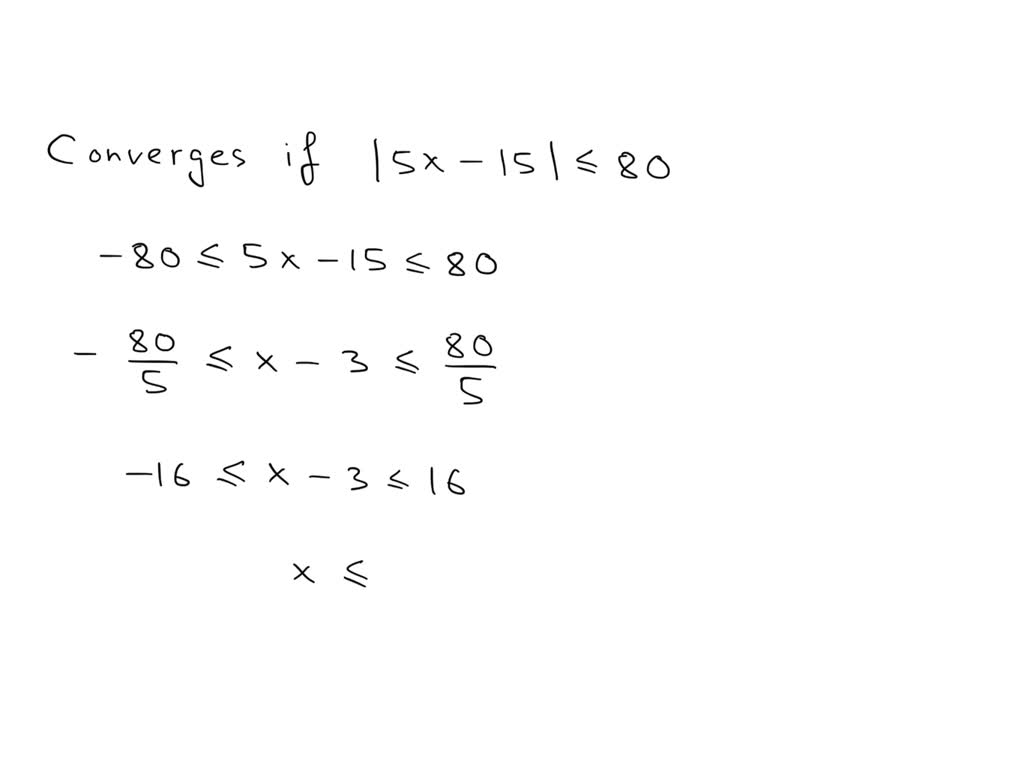 Converges if |5x - 15| ≤ 80
-80 ≤ 5x - 15 ≤ 80
- 80/5 ≤ x - 3 ≤ 80/5
-16 ≤ x - 3 ≤ 16
x ≤